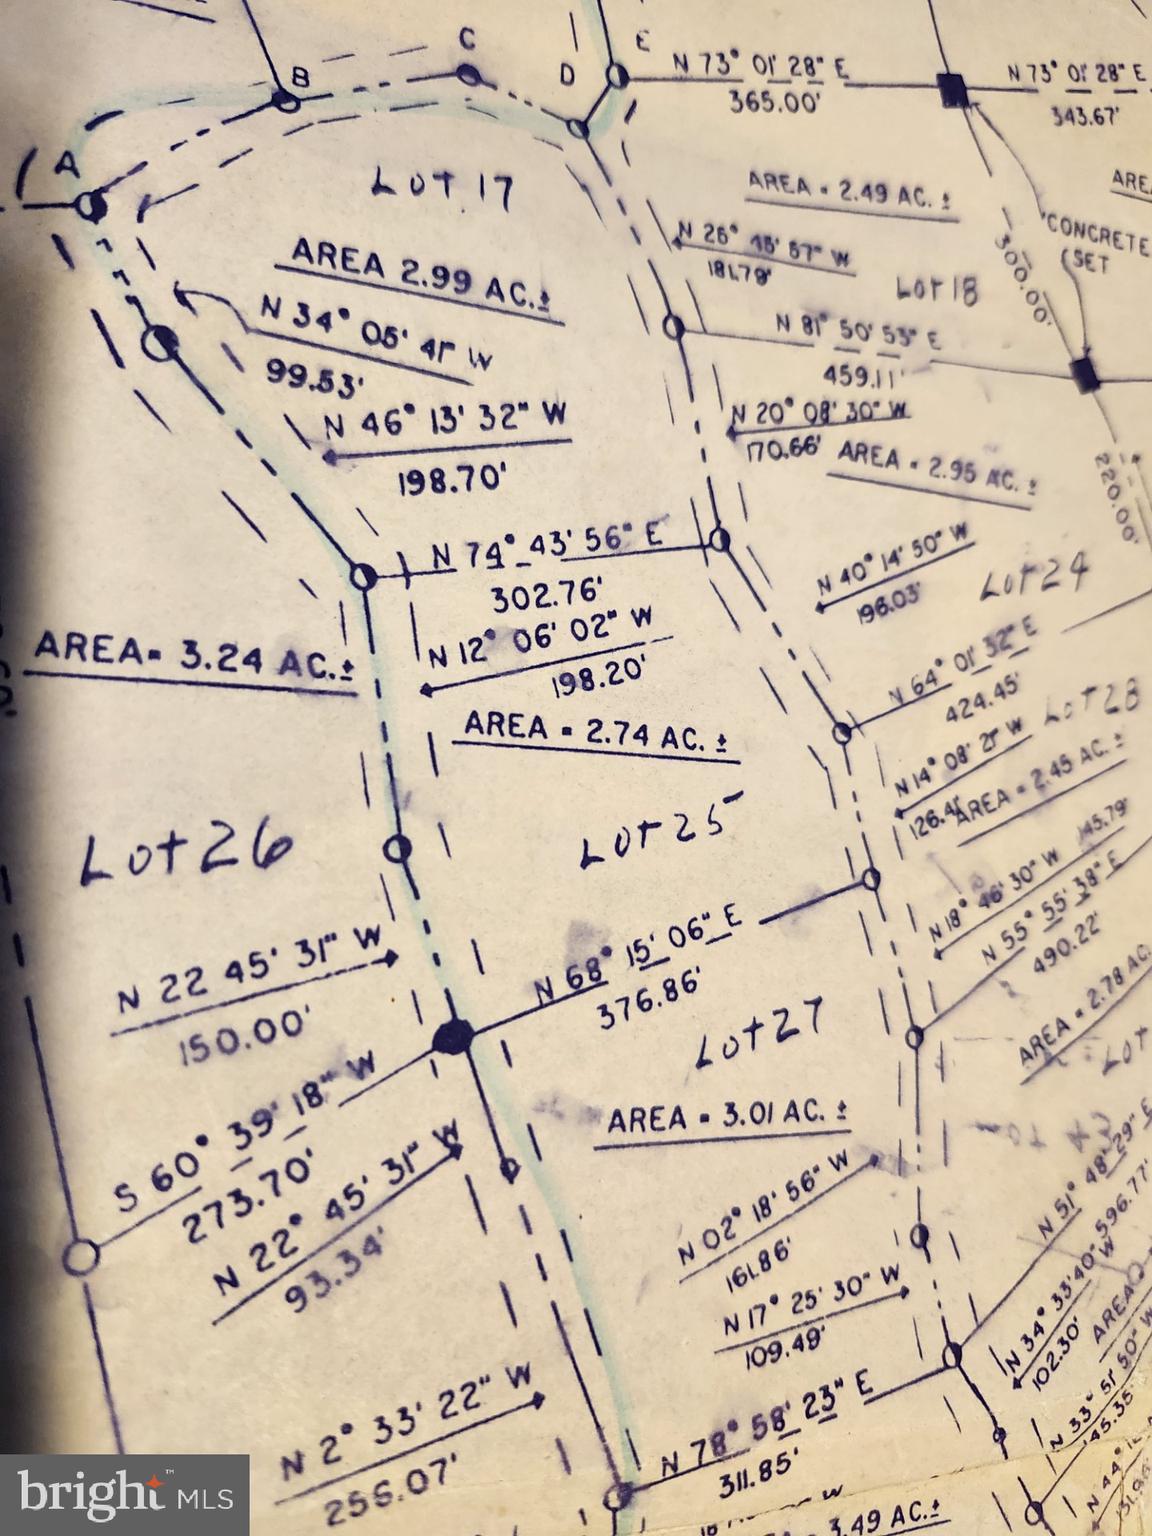 C
E
B
D
N 73° 01' 28" E
365.00'
N 73° 01' 28" E
343.67'
A
LOT 17
AREA = 2.49 AC. ±
AREA 2.99 AC. ±
N 34° 05' 41" W
99.53'
N 26° 45' 57" W
181.79'
LOT 18
CONCRETE
SET
300.00'
N 81° 50' 53" E
459.11'
N 46° 13' 32" W
198.70'
N 20° 08' 30" W
170.66'
AREA = 2.95 AC. ±
220.00'
N 74° 43' 56" E
302.76'
N 40° 14' 50" W
196.03'
LOT 24
N 12° 06' 02" W
198.20'
AREA = 3.24 AC. ±
N 64° 01' 32" E
424.45'
AREA = 2.74 AC. ±
LOT 28
N 14° 08' 21" W
126.41'
AREA = 2.45 AC. ±
LOT 26
LOT 25
N 18° 46' 30" W 145.79'
N 55° 55' 38" E
490.22'
N 68° 15' 06" E
376.86'
N 22 45' 31" W
150.00'
AREA = 2.78 AC.
LOT 27
LOT
AREA = 3.01 AC. ±
S 60° 39' 18" W
273.70'
N 22° 45' 31" W
93.34'
N 02° 18' 56" W
161.86'
N 51° 48' 29" E
596.77'
N 17° 25' 30" W
109.49'
N 34° 33' 40" W
102.30'
AREA
N 33° 51' 50" W
145.35'
N 2° 33' 22" W
256.07'
N 78° 58' 23" E
311.85'
N 44°
3.49 AC. ±
bright MLS
™